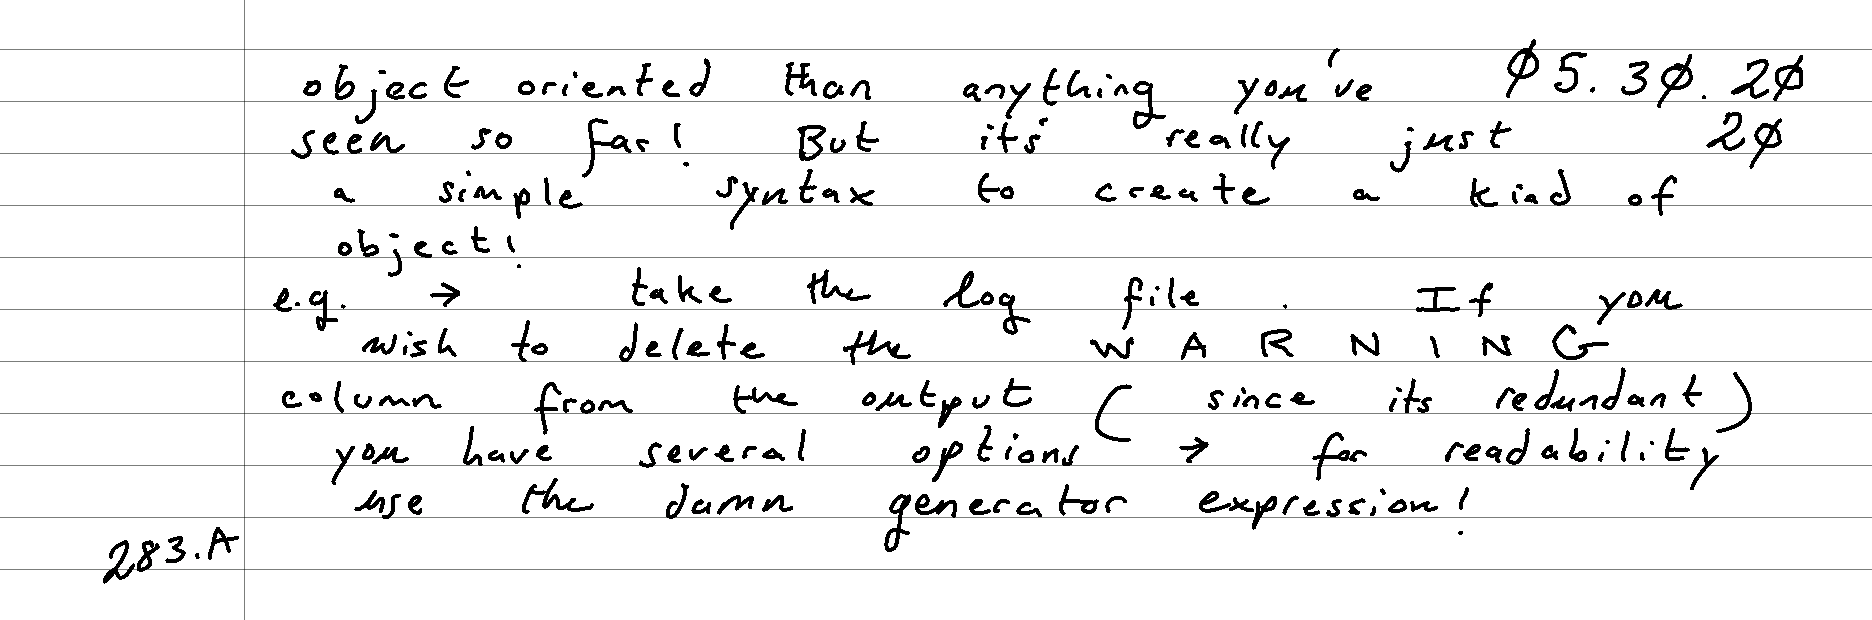 object oriented than anything you've Ø5. 3Ø. 2Ø
seen so far! But it's really just 2Ø
a simple syntax to create a kind of
object!
e.g. → take the log file. If you
wish to delete the WARNING
column from the output (since its redundant)
you have several options → for readability
use the damn generator expression!
283.A